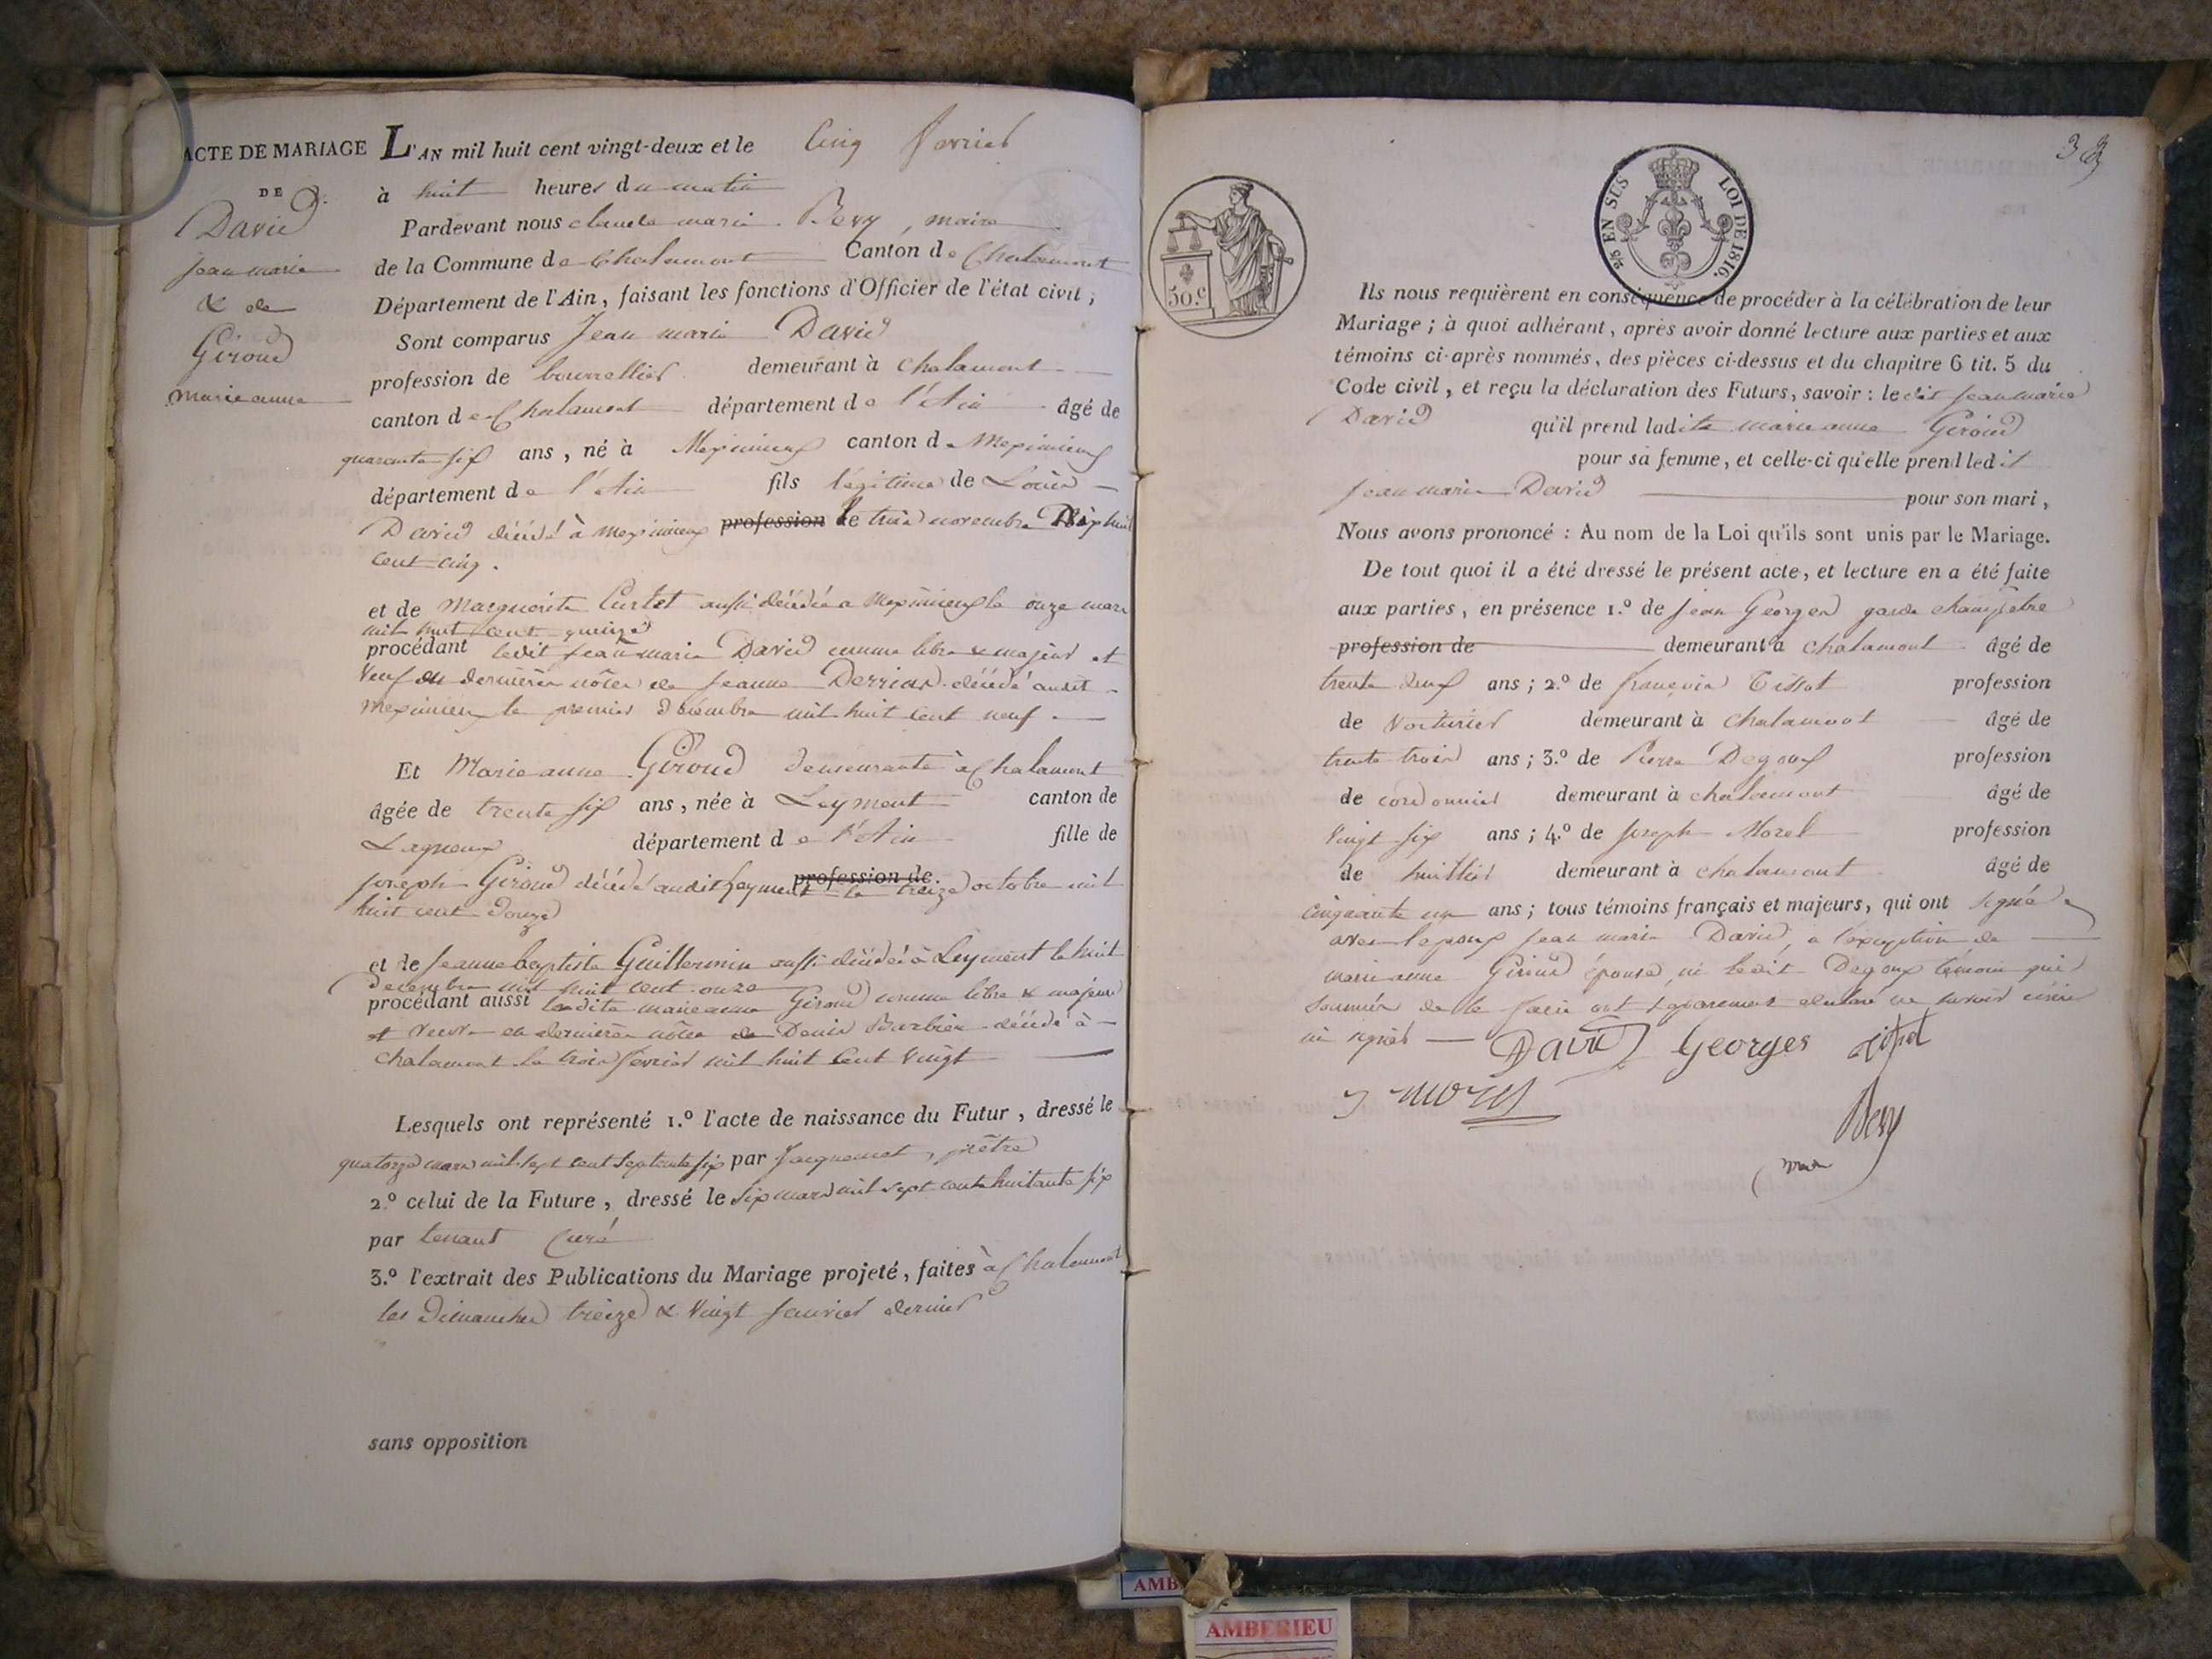 ACTE DE MARIAGE
DE
David
jean marie
& de
Giroud
marie anne
L'AN mil huit cent vingt-deux et le Cinq fevrier
à huit heures du matin
Pardevant nous claude marie Bevy, maire
de la Commune de Chalamont Canton de Chalamont
Département de l'Ain, faisant les fonctions d'Officier de l'état civil,
Sont comparus Jean marie David
profession de bourrellier demeurant à chalamont
canton de Chalamont département de l'Ain âgé de
quarante six ans, né à Meximieux canton de Meximieux
département de l'Ain fils légitime de Louis
David décédé à meximieux profession de le trois novembre
cent cinq.
et de Marguerite Curtet aussi décédée a Meximieux le onze mars
mil huit cent quinze
procédant ledit jean marie David comme libre & majeur et
Veuf en dernières nôces de Jeanne Derrias décédé audit
meximieux le premier décembre mil huit cent neuf
Et Marie anne Giroud demeurante à Chalamont
âgée de trente six ans, née à Leyment canton de
Lagneux département de l'Ain fille de
joseph Giroud décédé audit Leyment profession de le treize octobre mil
huit cent douze
et de Jeanne baptiste Guillermin aussi décédée à Leyment le huit
decembre mil huit cent onze
procédant aussi ladite marie anne Giroud comme libre & majeure
et veuve en dernières nôces de Denis Barbier décédé à
chalamont le trois février mil huit cent vingt
Lesquels ont représenté 1.º l'acte de naissance du Futur, dressé le
quatorze mars mil sept cent septante six par Jacquemet, prêtre
2.º celui de la Future, dressé le six mars mil sept cent huitante six
par tenant curé
3.º l'extrait des Publications du Mariage projeté, faites à Chalamont
les dimanches treize & vingt janvier dernier
sans opposition
38
2/5 EN SUS LOI DE 1816.
50.c
Ils nous requièrent en conséquence de procéder à la célébration de leur
Mariage; à quoi adhérant, après avoir donné lecture aux parties et aux
témoins ci-après nommés, des pièces ci-dessus et du chapitre 6 tit. 5 du
Code civil, et reçu la déclaration des Futurs, savoir: ledit jean marie
David qu'il prend ladite marie anne Giroud
pour sa femme, et celle-ci qu'elle prend ledit
jean marie David pour son mari,
Nous avons prononcé: Au nom de la Loi qu'ils sont unis par le Mariage.
De tout quoi il a été dressé le présent acte, et lecture en a été faite
aux parties, en présence 1.º de jean Georges garde champêtre
profession de demeurant à chalamont âgé de
trente deux ans; 2.º de françois Tissot profession
de voiturier demeurant à chalamont âgé de
trente trois ans; 3.º de Pierre Degoux profession
de cordonnier demeurant à chalamont âgé de
vingt six ans; 4.º de joseph Morel profession
de huillier demeurant à chalamont âgé de
cinquante un ans; tous témoins français et majeurs, qui ont signé
avec lepoux jean marie David, a l'exception de
marie anne Giroud épouse, ni ledit Degoux témoin qui
sommés de le faire ont séparément declaré ne savoir écrire
ni signer
David Georges
J morel
Bevy